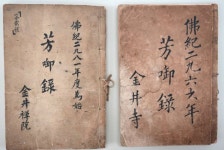 佛紀二九八一年度為始
芳啣錄
金井禪院
佛紀二九六 年
芳啣錄
金井寺